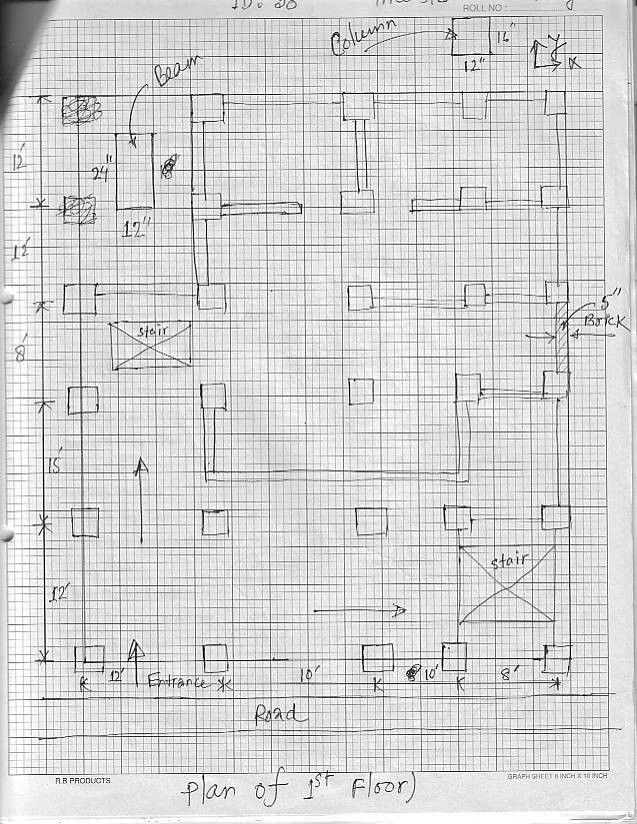 ROLL NO :
Column
16"
12"
Y
X
Beam
12'
24"
12"
12'
5"
Brick
stair
8'
15'
stair
12'
12'
Entrance
10'
10'
8'
Road
R.B PRODUCTS
GRAPH SHEET 8 INCH X 10 INCH
plan of 1st Floor)